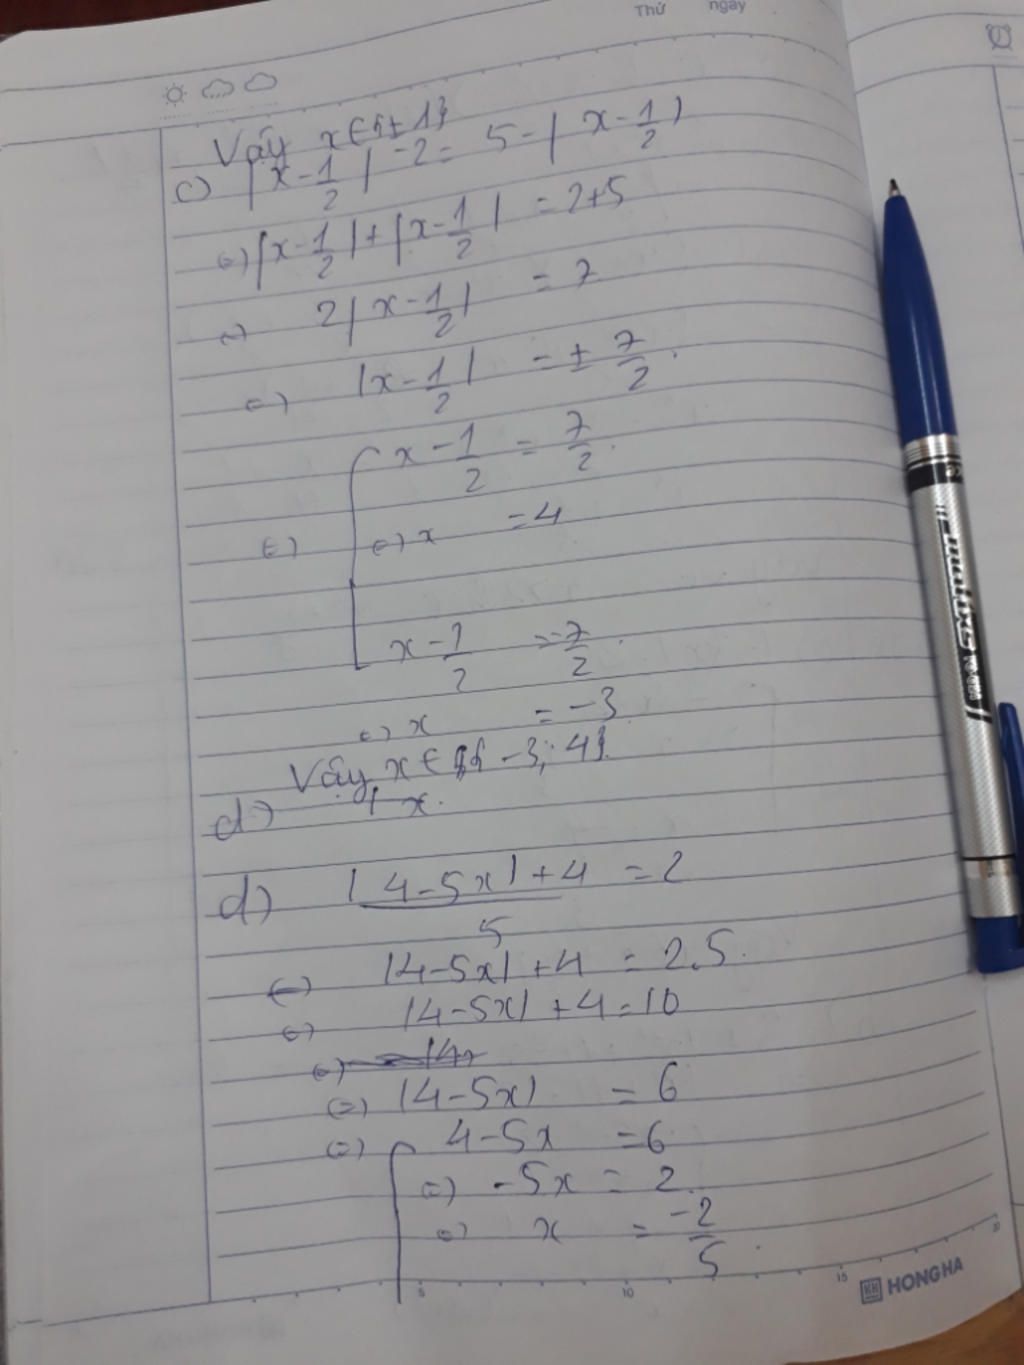 Thứ ngày
Vậy x ∈ {± 1}
c) |x - 1/2| - 2 = 5 - |x - 1/2|
(=) |x - 1/2| + |x - 1/2| = 2+5
(=) 2|x - 1/2| = 7
(=) |x - 1/2| = ± 7/2.
(=) [ x - 1/2 = 7/2.
(=) x = 4
x - 1/2 = -7/2.
(=) x = -3
Vậy x ∈ { -3; 4}.
d) | x.
d) |4-5x|+4 / 5 = 2
(=) |4-5x| + 4 = 2.5.
(=) |4-5x| + 4 = 10
(=) |4-5x| = 6
(=) [ 4-5x = 6
(=) -5x = 2.
(=) x = -2/5.
5 10 15 20
HH HONG HA